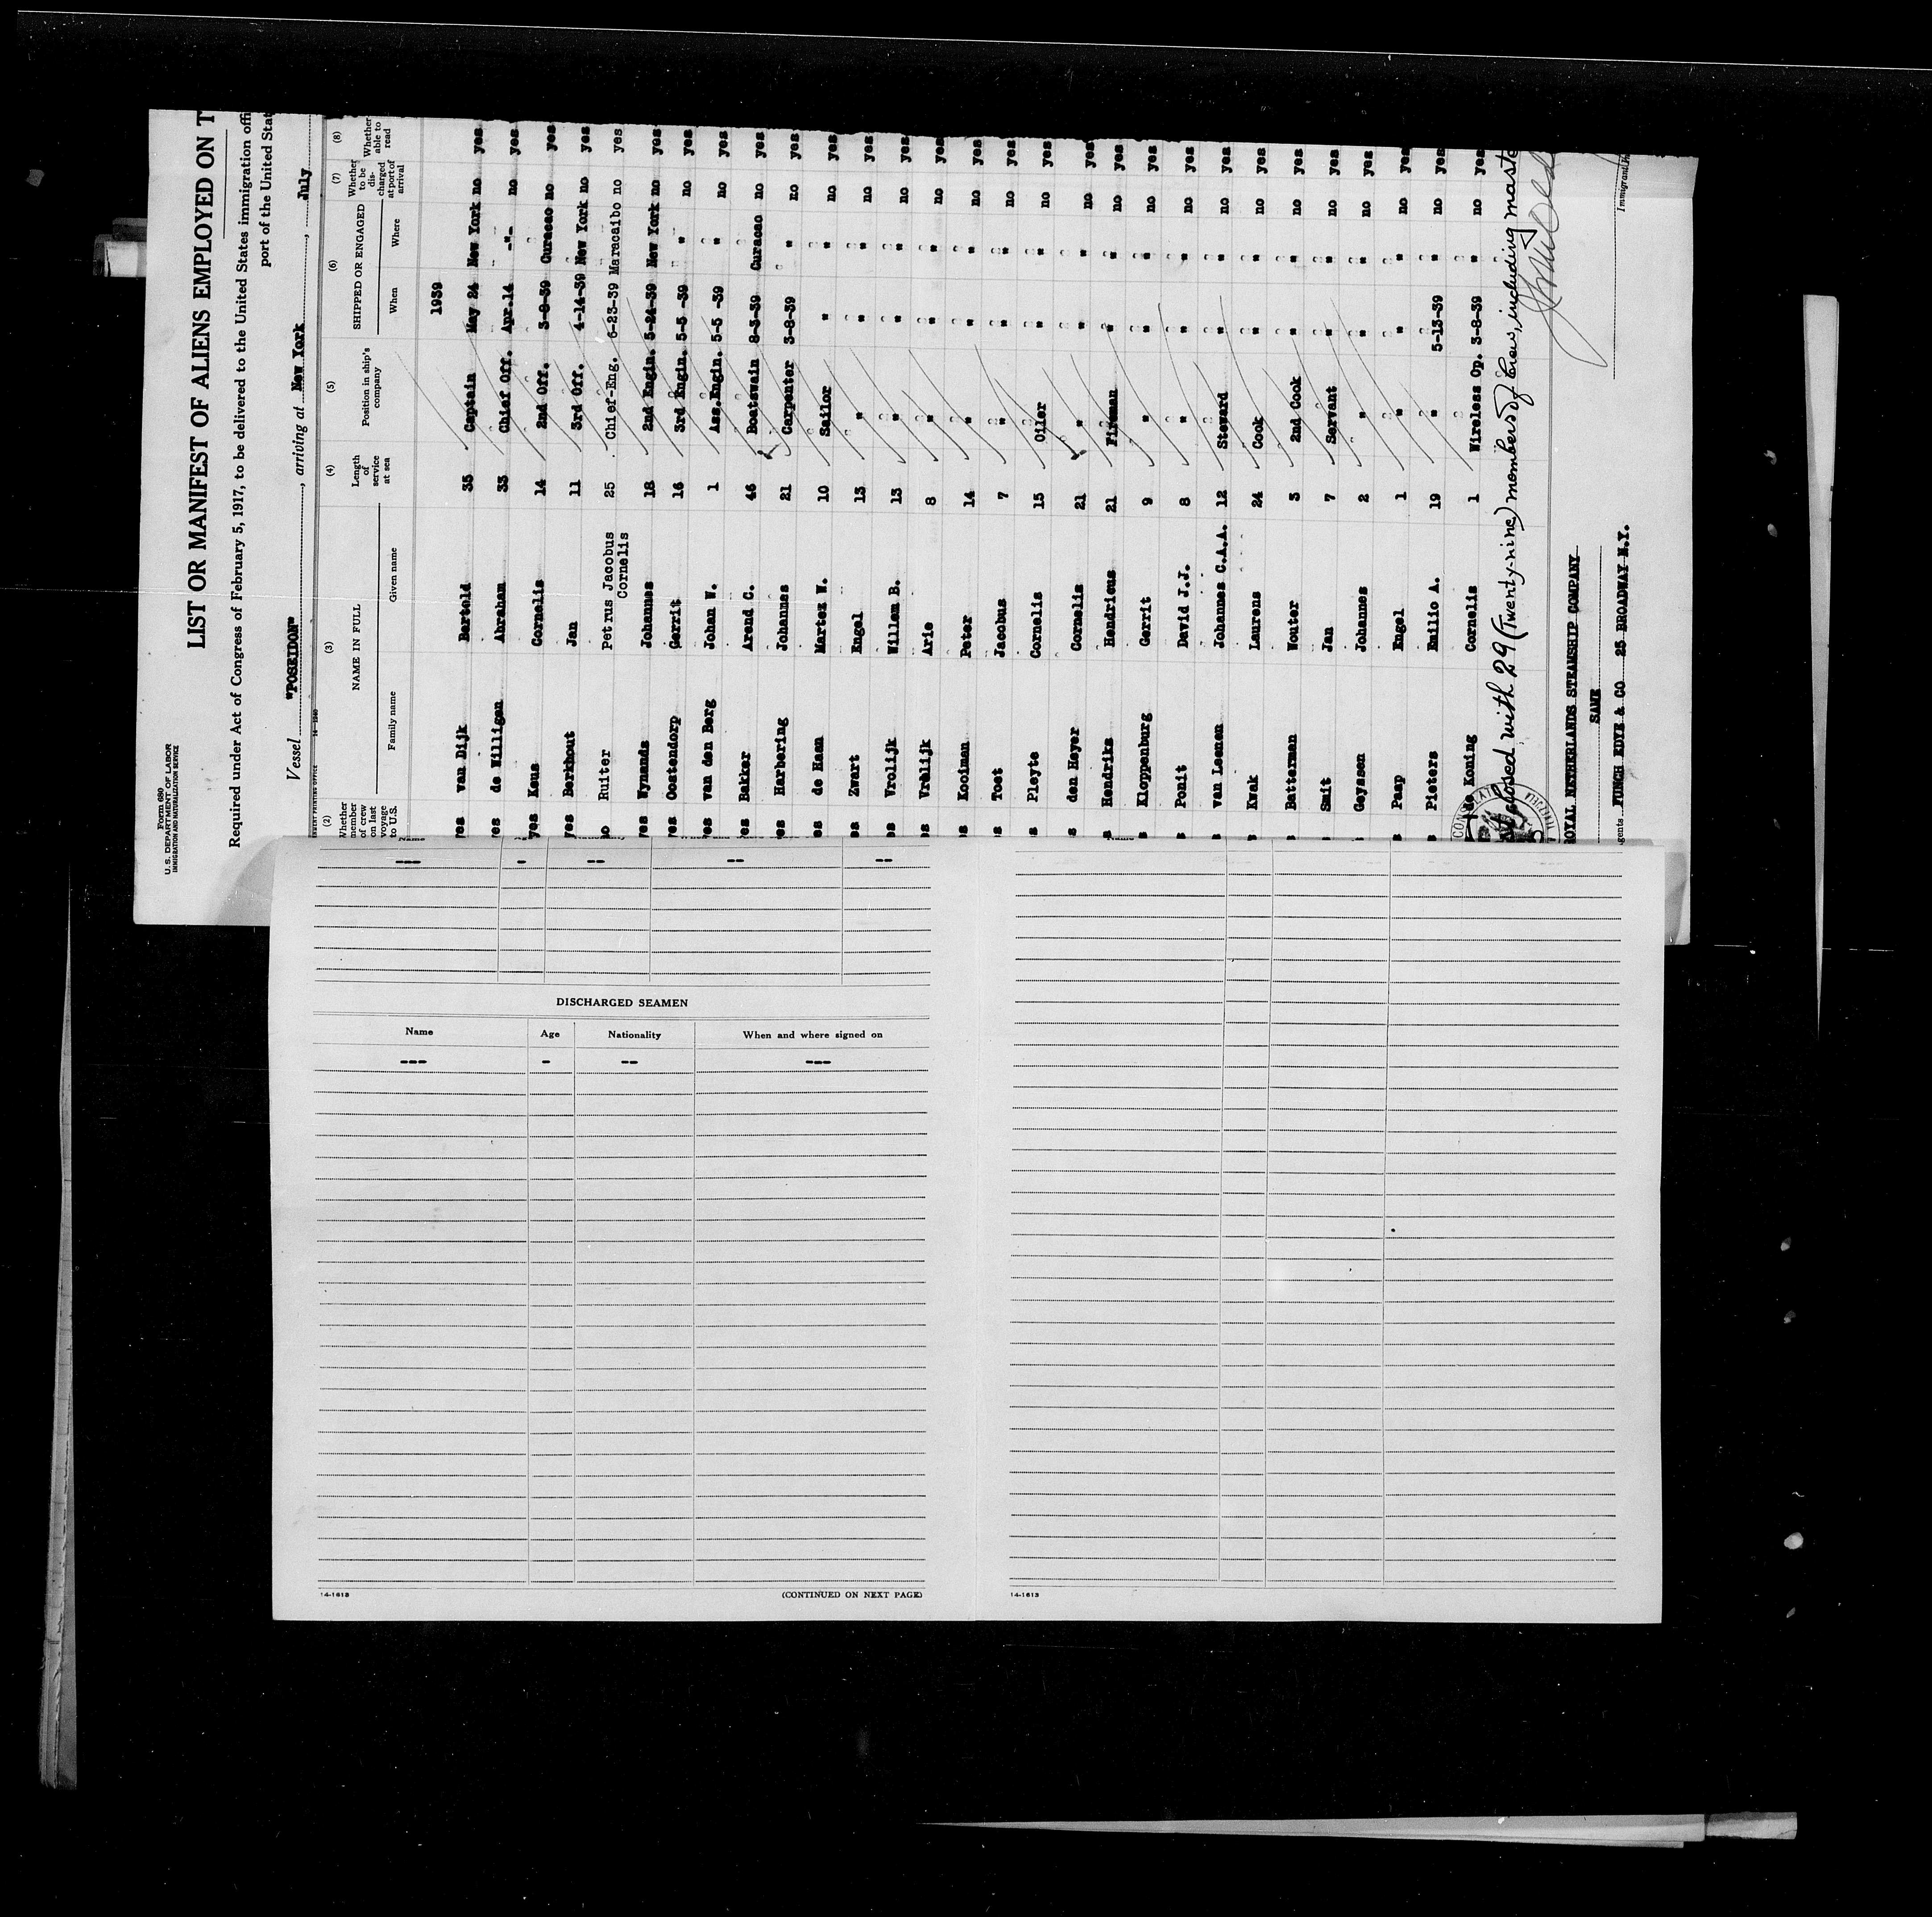 Form 680
U. S. DEPARTMENT OF LABOR
IMMIGRATION AND NATURALIZATION SERVICE
LIST OR MANIFEST OF ALIENS EMPLOYED ON T
Required under Act of Congress of February 5, 1917, to be delivered to the United States immigration offi
port of the United Stat
Vessel "POSEIDON", arriving at New York, July
14-1240
(2) (3) (4) (5) (6) (7) (8)
Whether member of crew on last voyage to U.S. NAME IN FULL Family name Given name Length of service at sea Position in ship's company SHIPPED OR ENGAGED When Where Whether to be discharged at port of arrival Whether able to read
1939
yes van Dijk Bertold 35 Captain May 24 New York no yes
yes de Willigen Abraham 33 Chief Off. Apr.14 -"- no yes
yes Keus Cornelis 14 2nd Off. 3-8-39 Curacao no yes
yes Berkhout Jan 11 3rd Off. 4-14-39 New York no yes
no Ruiter Petrus Jacobus Cornelis 25 Chief-Eng. 6-23-39 Maracaibo no yes
yes Wynands Johannes 18 2nd Engin. 5-24-39 New York no yes
yes Oostendorp Gerrit 16 3rd Engin. 5-5 -39 " no yes
yes van den Berg Johan W. 1 Ass.Engin. 5-5 -39 " no yes
yes Bakker Arend C. 46 Boatswain 8-3-39 Curacao no yes
yes Harbering Johannes 21 Carpenter 3-8-39 " no yes
es de Haan Martez W. 10 Sailor " " no yes
es Zwart Engel 13 " " " no yes
es Vrolijk Willem B. 13 " " " no yes
es Vrolijk Arie 8 " " " no yes
es Kooiman Peter 14 " " " no yes
s Toet Jacobus 7 " " " no yes
s Pleyte Cornelis 15 Oiler " " no yes
s den Heyer Cornelis 21 " " " no yes
s Hendriks Hendricus 21 Fireman " " no yes
s Kloppenburg Gerrit 9 " " " no yes
s Ponit David J.J. 8 " " " no yes
s van Leenen Johannes C.A.A. 12 Steward " " no yes
s Kwak Laurens 24 Cook " " no yes
s Batterman Wouter 3 2nd Cook " " no yes
s Smit Jan 7 Servant " " no yes
s Geyssen Johannes 2 " " " no yes
s Paap Engel 1 " " " no yes
s Pieters Emilio A. 19 " 5-13-39 " no yes
de Koning Cornelis 1 Wireless Op. 3-8-39 " no yes
closed with 29 (Twenty-nine) members of crew, including maste
OYAL NETHERLANDS STEAMSHIP COMPANY
SAME
gents FUNCH EDYE & CO 25 BROADWAY N.Y.
--- - -- -- --
DISCHARGED SEAMEN
Name Age Nationality When and where signed on
--- - -- ---
14-1613 (CONTINUED ON NEXT PAGE)
14-1613